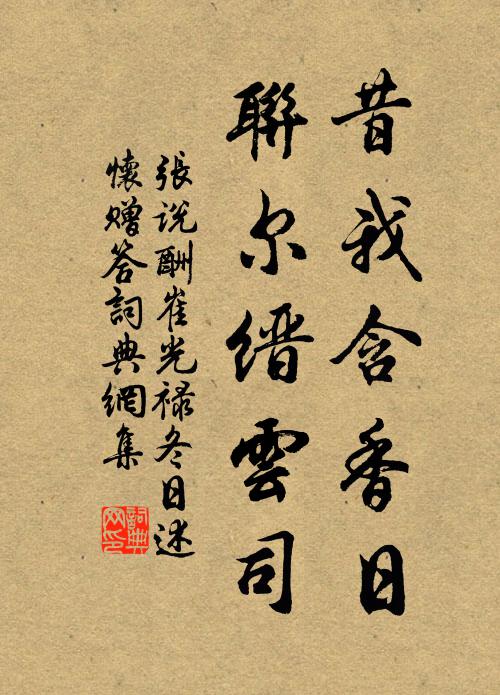 昔我含香日
聯尔缙雲司
張说酬崔光禄冬日述
懷赠答詞典網集
詞典
网印